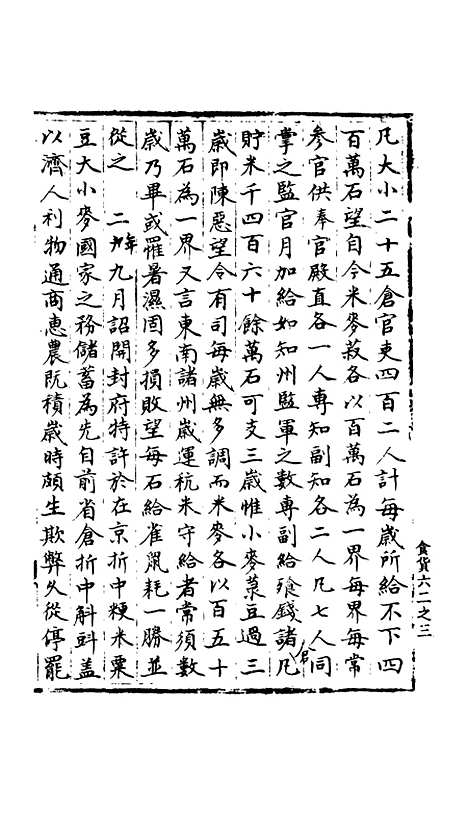 凡大小二十五倉官吏四百二人計每歲所給不下四
百萬石望自今米麥菽各以百萬石為一界每界每常
參官供奉官殿直各一人專知副知各二人凡七人同
掌之監官月加給如知州監軍之數專副給飱錢諸倉凡
貯米千四百六十餘萬石可支三歲惟小麥菉豆過三
歲即陳惡望令有司每歲無多調而米麥各以百五十
萬石為一界又言東南諸州歲運秔米守給者常須數
歲乃畢或罹暑濕固多損敗望每石給雀鼠耗一勝並
從之 二年九月詔開封府特許於在京折中粳米粟
豆大小麥國家之務儲蓄為先自前省倉折中斛㪷蓋
以濟人利物通商惠農既積歲時頗生欺弊久從停罷
食貨六二之三